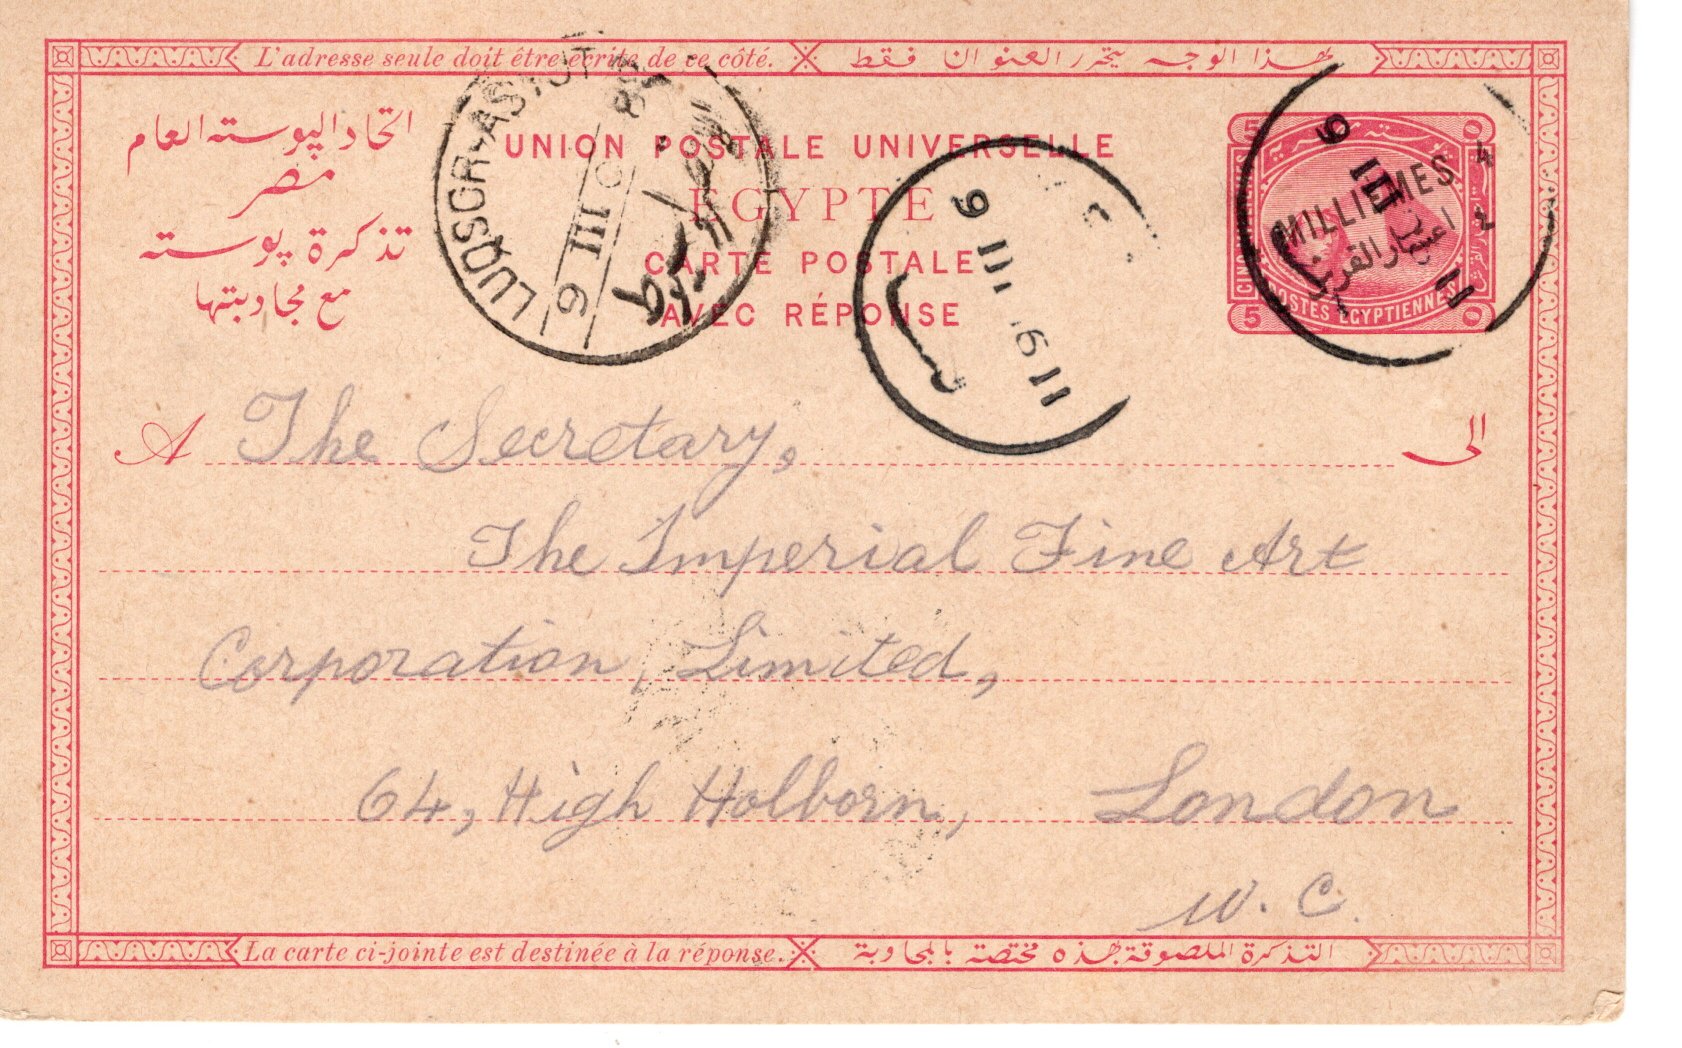 L'adresse seule doit être écrite de ce côté.
بهذا الوجه يتحرر العنوان فقط
اتحاد البوسته العام
مصر
تذكرة بوسته
مع مجاوبتها
UNION POSTALE UNIVERSELLE
EGYPTE
CARTE POSTALE
AVEC RÉPONSE
LUQSOR-ASYUT
9 III
9 III 11
9 III
MILLIEMES
POSTES EGYPTIENNES
5 5
A The Secretary, الى
The Imperial Fine Art
Corporation, Limited,
64, High Holborn, London
W. C.
La carte ci-jointe est destinée à la réponse.
التذكرة الملصوقة بهذه مختصة بالمجاوبة